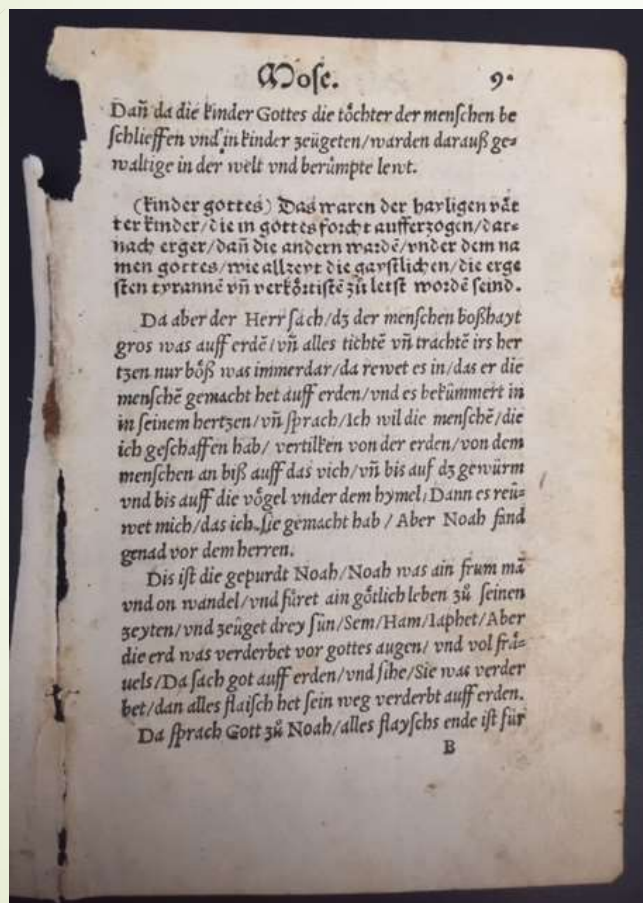 Mose. 9.
Dañ da die kinder Gottes die toͤchter der menſchen be
ſchlieffen vnd in kinder zeügeten/warden darauß ge⸗
waltige in der welt vnd beruͤmpte lewt.
(kinder gottes) Das waren der hayligen vaͤt
ter kinder/die in gottes forcht aufferzogen/dar⸗
nach erger/dañ die andern wardē/vnder dem na
men gottes/wie allzeyt die gayſtlichen/die erge
ſten tyrannē vñ verkoͤrtiſtē zuͦ letſt wordē ſeind.
Da aber der Herr ſach/dz der menſchen boßhayt
gros was auff erdē/vñ alles tichtē vñ trachtē irs her
tzen nur boͤß was immerdar/da rewet es in/das er die
menſchē gemacht het auff erden/vnd es bekuͤmmert in
in ſeinem hertzen/vñ ſprach/Ich wil die menſchē/die
ich geſchaffen hab/ vertilken von der erden/von dem
menſchen an biß auff das vich/vñ bis auf dz gewürm
vnd bis auff die voͤgel vnder dem hymel/Dann es reü⸗
wet mich/das ich ſie gemacht hab/ Aber Noah fand
genad vor dem herren.
Dis iſt die gepurdt Noah/Noah was ain frum mā
vnd on wandel/vnd fuͤret ain goͤtlich leben zuͦ ſeinen
zeyten/vnd zeüget drey ſün/Sem/Ham/Iaphet/Aber
die erd was verderbet vor gottes augen/ vnd vol fraͤ⸗
uels/Da ſach got auff erden/vnd ſihe/Sie was verder
bet/dan alles flaiſch het ſein weg verderbt auff erden.
Da ſprach Gott zuͦ Noah/alles flayſchs ende iſt für
B